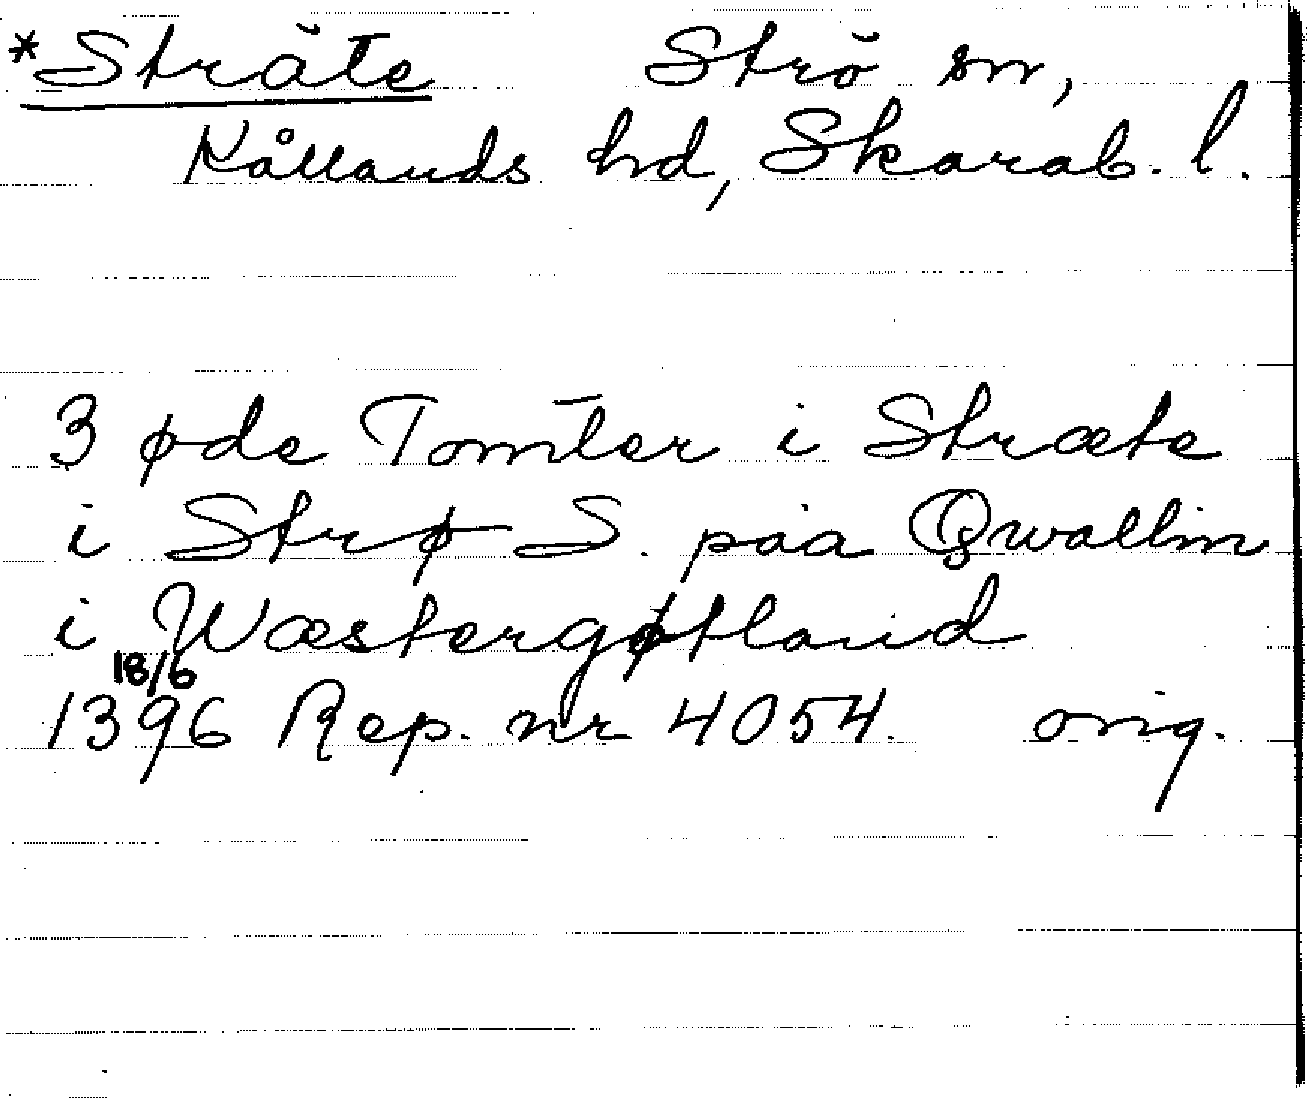 *Sträte Strö sn,
Kållands hd, Skarab. l.
3 øde Tomter i Stræte
i Strø S. paa Qwallin
i Wæstergøtland
18/6
1396 Rep. nr 4054. orig.